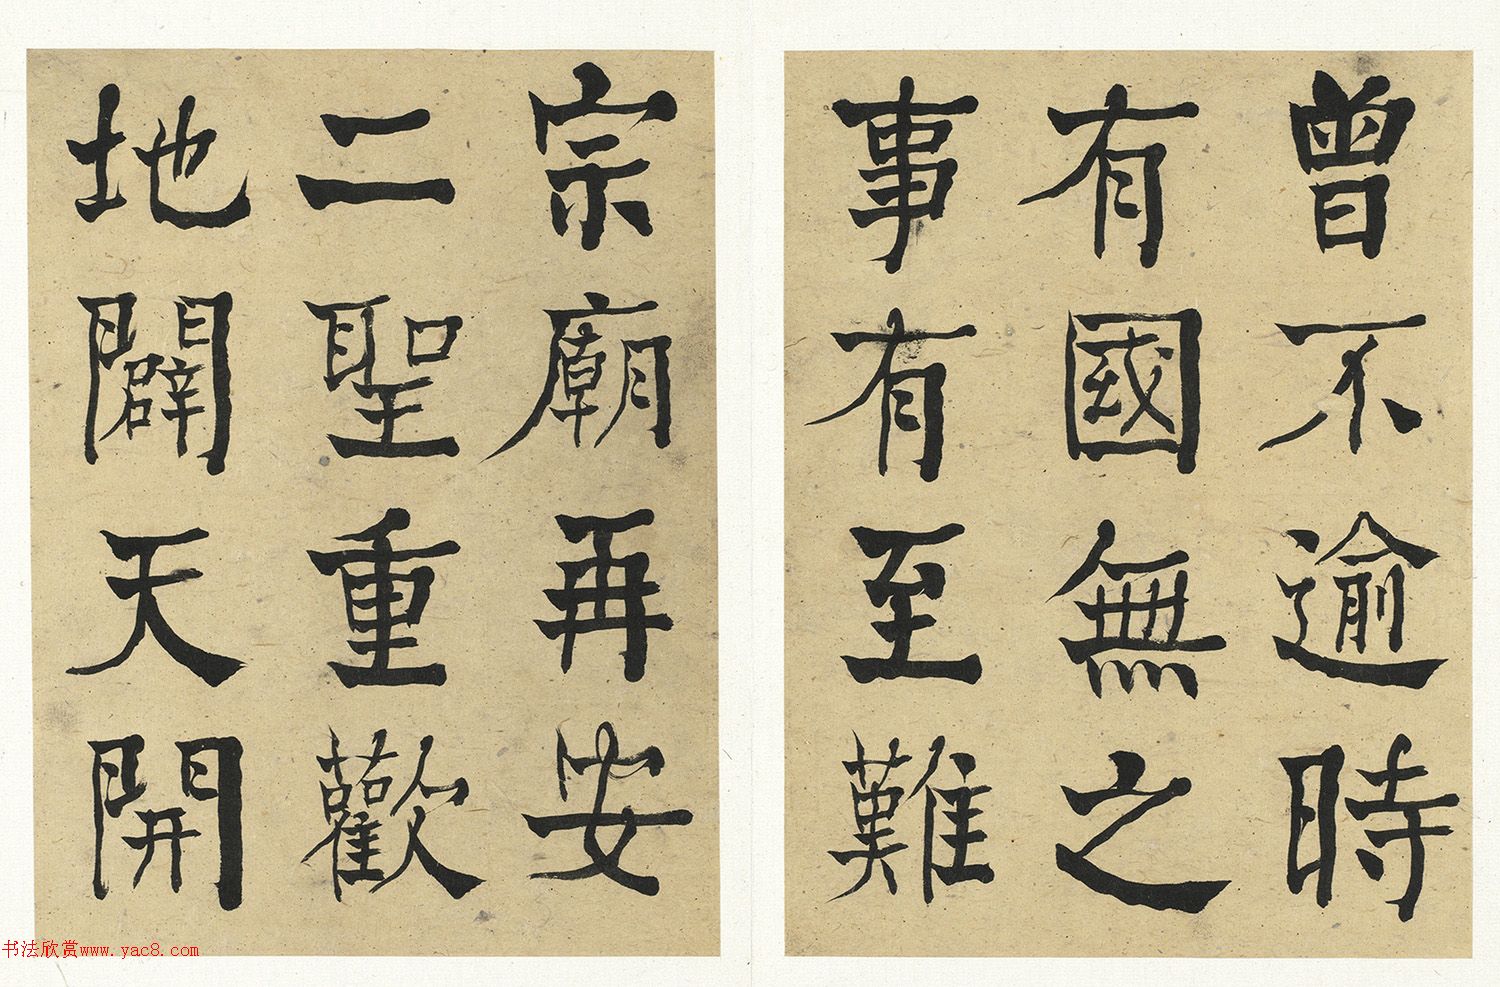 曾不逾時
有國無之
事有至難
宗廟再安
二聖重歡
地闢天開
书法欣赏www.yac8.com